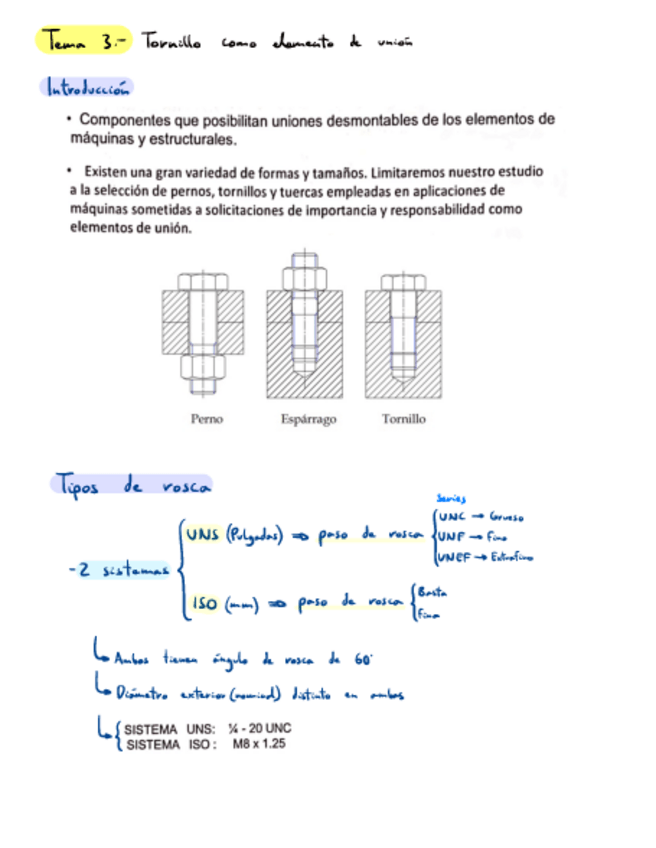 Tema 3.- Tornillo como elemento de unión
Introducción
• Componentes que posibilitan uniones desmontables de los elementos de
máquinas y estructurales.
• Existen una gran variedad de formas y tamaños. Limitaremos nuestro estudio
a la selección de pernos, tornillos y tuercas empleadas en aplicaciones de
máquinas sometidas a solicitaciones de importancia y responsabilidad como
elementos de unión.
Perno Espárrago Tornillo
Tipos de rosca
series
UNC → Grueso
UNS (Pulgadas) ⇒ paso de rosca UNF → Fino
UNEF → Extrafino
- 2 sistemas
Basta
ISO (mm) ⇒ paso de rosca
Fina
↳ Ambos tienen ángulo de rosca de 60°
↳ Diámetro exterior (nominal) distinto en ambos
↳ SISTEMA UNS: ¼ - 20 UNC
SISTEMA ISO : M8 x 1.25